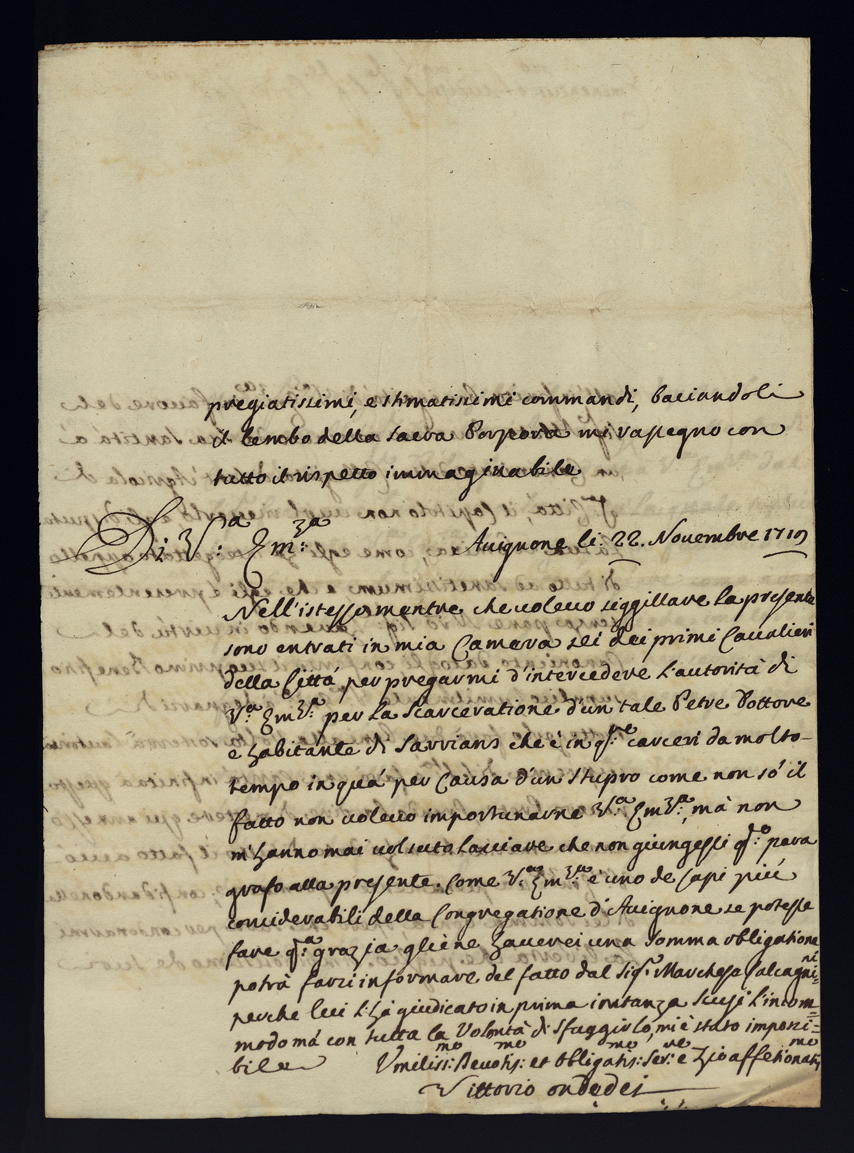 pregiatissimi, e stimatissimi commandi, baciandoli
il lembo della sacra Porpora mi rassegno con
tutto il rispetto immaginabile
Di V:ra Em:za Avignone li 22. Novembre 1719
Nell'istesso mentre che volevo siggillare la presente
sono entrati in mia Camera sei dei primi Cavalieri
della Cittá, per pregarmi d'intercedere l'autorità di
V:ra Emza per la scarceratione d'un tale Petre Dottore
e habitante di Sarrians che è in q:ste carceri da molto
tempo in quá per causa d'un stupro come non só il
fatto non volevo importunarne V:ra Emza, mà non
m'hanno mai volsuto lasciare che non giungessi q:sto para
grafo alla presente. Come V:ra Emza è uno de Capi più
considerabili della Congregatione d'Avignone se potesse
fare q:sta grazia gliene haverei una somma obligatione
potrà farsi informare del fatto dal Sig:r Marchese Calcagnini
perche lui l'há giudicato in prima instanza scusi l'incom=
modo má con tutta la volontá di sfuggirlo, mi è stato impossi=
bile Vmiliss:mo Devotis:mo et obligatis:mo Ser:re e Zio affetionatmo
Vittorio ondedei